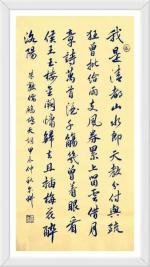 我是清都山水郎天教分付與疏
狂曾批給雨支風券累上留雲借月
章詩萬首酒千觴幾曾着眼看
侯王玉楼金闕慵歸去且插梅花醉
洛陽
朱敦儒鷓鴣天词甲辰仲秋